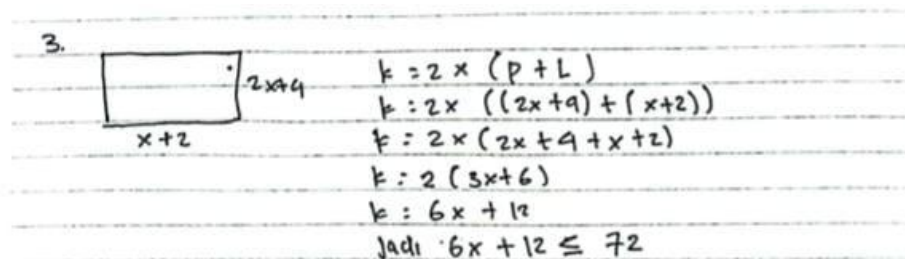 3.
2x+4
x+2
k = 2 x (P + L)
k : 2x ((2x+4) + (x+2))
k : 2 x (2x + 4 + x + 2)
k : 2 (3x+6)
k : 6x + 12
Jadi 6x + 12 ≤ 72